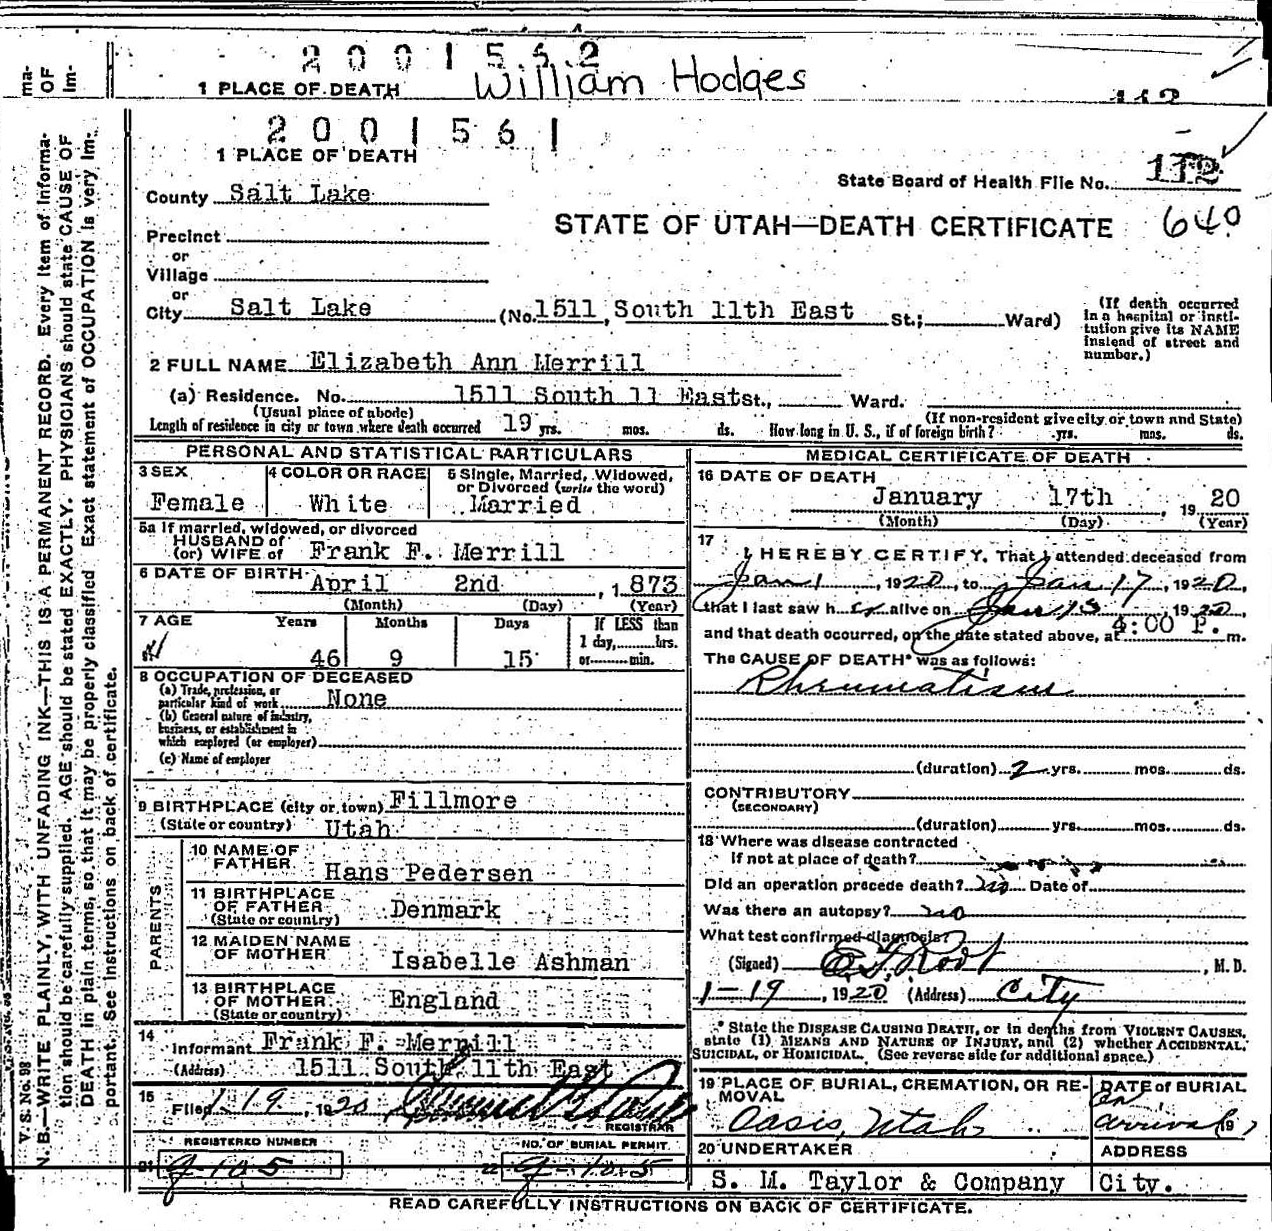 2001562
1 PLACE OF DEATH William Hodges
112
2001561
1 PLACE OF DEATH
State Board of Health File No. 112
County Salt Lake
STATE OF UTAH—DEATH CERTIFICATE 640
Precinct
or
Village
or
City Salt Lake (No. 1511, South 11th East St.; Ward)
(If death occurred in a hospital or insti-
tution give its NAME
instead of street and
number.)
2 FULL NAME Elizabeth Ann Merrill
(a) Residence. No. 1511 South 11 East St., Ward.
(Usual place of abode) (If non-resident give city or town and State)
Length of residence in city or town where death occurred 19 yrs. mos. ds. How long in U. S., if of foreign birth? yrs. mos. ds.
PERSONAL AND STATISTICAL PARTICULARS
3 SEX
Female
4 COLOR OR RACE
White
5 Single, Married, Widowed,
or Divorced (write the word)
Married
5a If married, widowed, or divorced
HUSBAND of
(or) WIFE of Frank F. Merrill
6 DATE OF BIRTH April 2nd, 1873
(Month) (Day) (Year)
7 AGE Years Months Days If LESS than
1 day, hrs.
46 9 15 or min.
8 OCCUPATION OF DECEASED
(a) Trade, profession, or
particular kind of work None
(b) General nature of industry,
business, or establishment in
which employed (or employer)
(c) Name of employer
9 BIRTHPLACE (city or town) Fillmore
(State or country) Utah
PARENTS
10 NAME OF
FATHER Hans Pedersen
11 BIRTHPLACE
OF FATHER Denmark
(State or country)
12 MAIDEN NAME
OF MOTHER Isabelle Ashman
13 BIRTHPLACE
OF MOTHER England
(State or country)
14
Informant Frank F. Merrill
(Address) 1511 South 11th East
15
Filed 1 19, 1920
REGISTRAR
REGISTERED NUMBER
21 g-105
NO. OF BURIAL PERMIT
22 g-105
MEDICAL CERTIFICATE OF DEATH
16 DATE OF DEATH
January 17th, 1920
(Month) (Day) (Year)
17
I HEREBY CERTIFY, That I attended deceased from
Jan 1, 1920, to Jan 17, 1920,
that I last saw her alive on Jan 13, 1920
and that death occurred, on the date stated above, at 4:00 P. m.
The CAUSE OF DEATH* was as follows:
Rheumatism
(duration) 2 yrs. mos. ds.
CONTRIBUTORY
(SECONDARY)
(duration) yrs. mos. ds.
18 Where was disease contracted
if not at place of death?
Did an operation precede death? no Date of
Was there an autopsy? no
What test confirmed diagnosis?
(Signed) Root, M. D.
1-19, 1920 (Address) City
* State the DISEASE CAUSING DEATH, or in deaths from VIOLENT CAUSES,
state (1) MEANS AND NATURE OF INJURY, and (2) whether ACCIDENTAL,
SUICIDAL, or HOMICIDAL. (See reverse side for additional space.)
19 PLACE OF BURIAL, CREMATION, OR RE-
MOVAL
Oasis, Utah
DATE of BURIAL
on
arrival, 19
20 UNDERTAKER
S. M. Taylor & Company
ADDRESS
City.
READ CAREFULLY INSTRUCTIONS ON BACK OF CERTIFICATE.
ma-
OF
Im-
V. S. No. 98
N. B.—WRITE PLAINLY, WITH UNFADING INK—THIS IS A PERMANENT RECORD. Every item of informa-
tion should be carefully supplied. AGE should be stated EXACTLY. PHYSICIANS should state CAUSE OF
DEATH in plain terms, so that it may be properly classified. Exact statement of OCCUPATION is very im-
portant. See instructions on back of certificate.